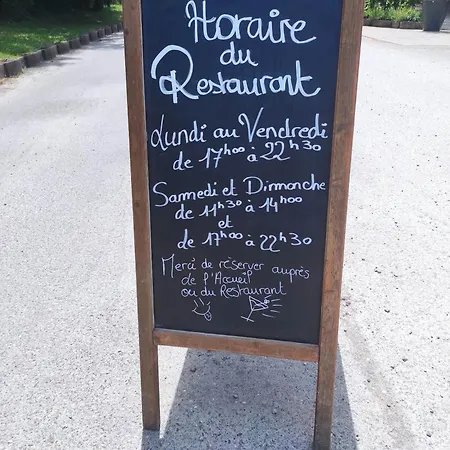 Horaire
du
Restaurant
Lundi au Vendredi
de 17h00 à 22h30
Samedi et Dimanche
de 11h30 à 14h00
et
de 17h00 à 22h30
Merci de réserver auprès
de l'Accueil
ou du Restaurant